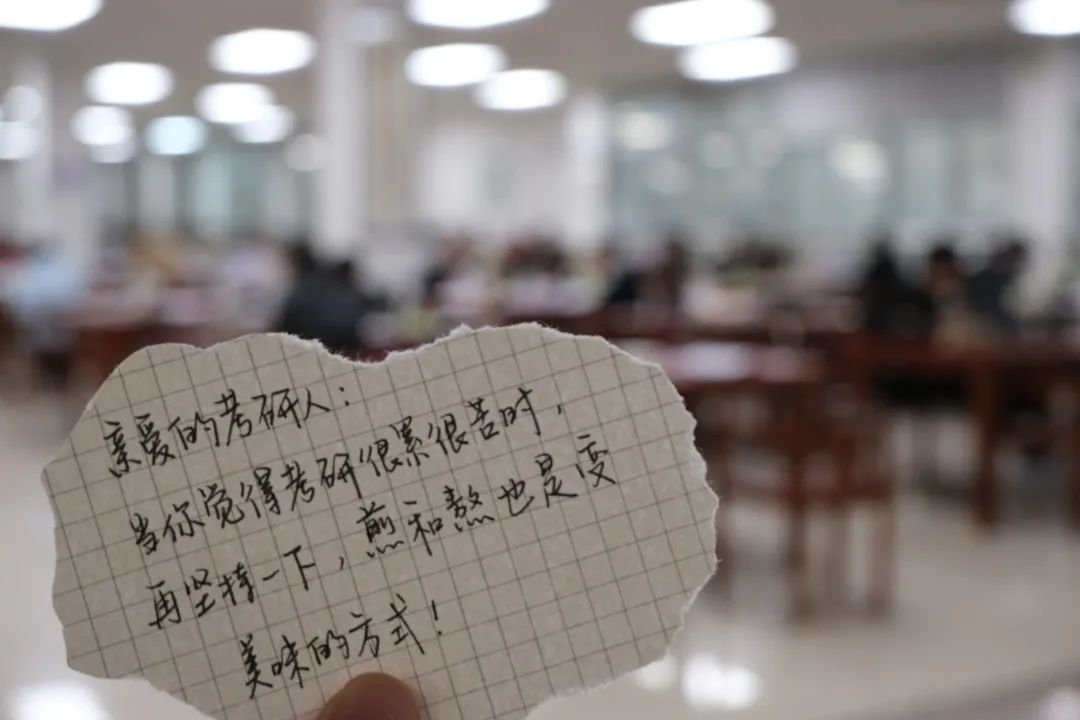 亲爱的考研人：
当你觉得考研很累很苦时，
再坚持一下，煎和熬也是变
美味的方式！